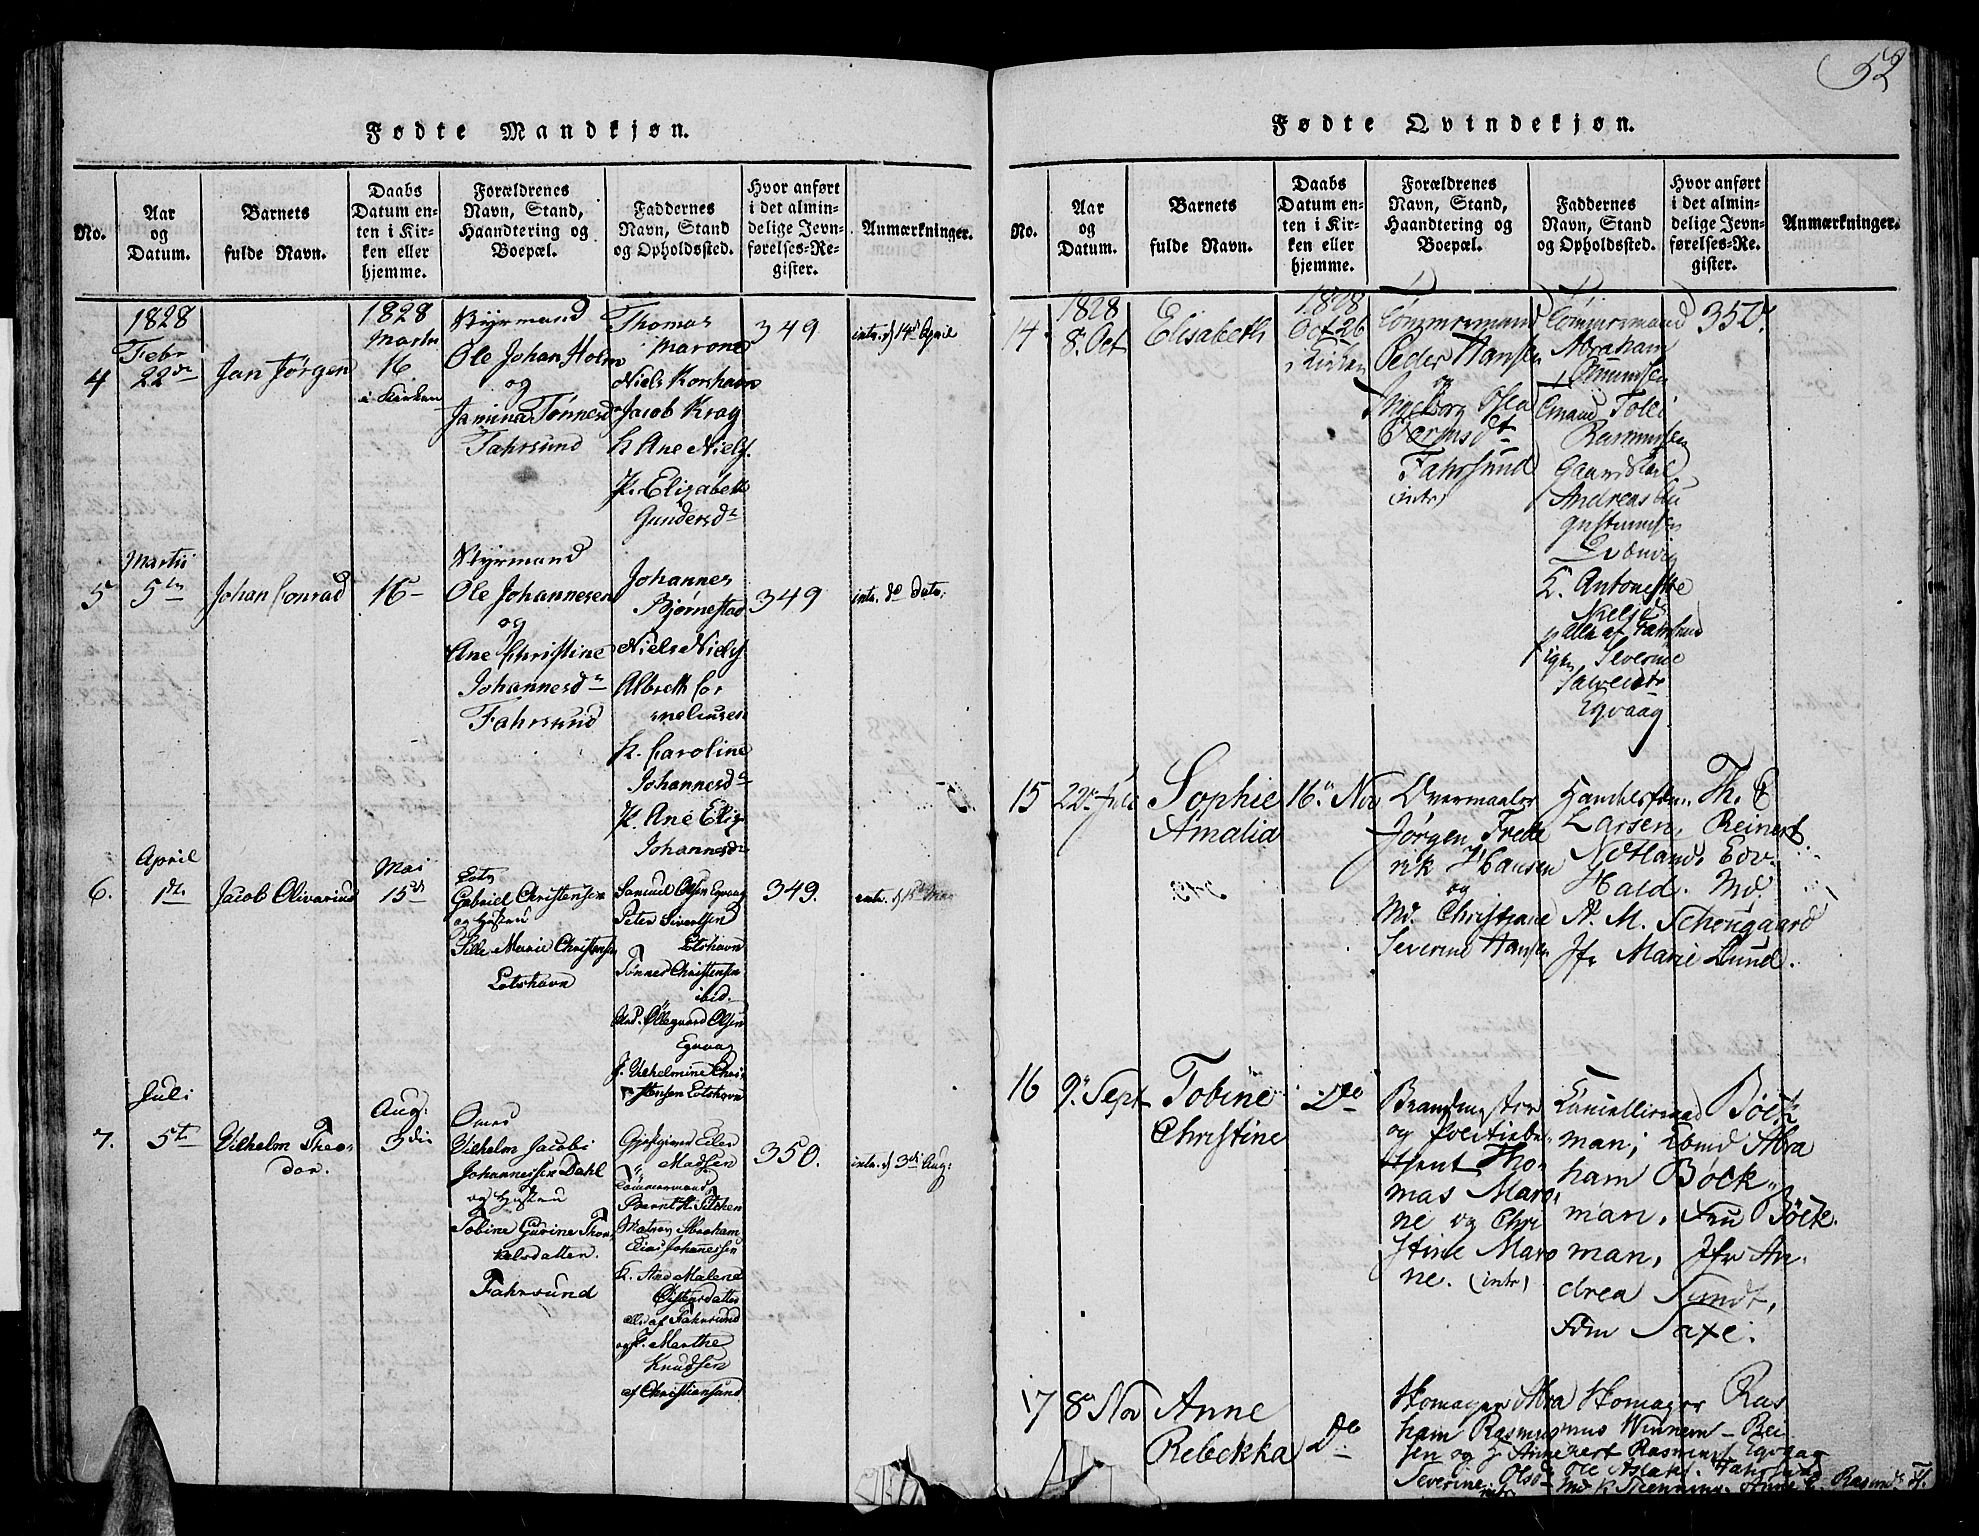 52
Fødte Mandkjøn.
No.
Aar
og
Datum.
Barnets
fulde Navn.
Daabs
Datum en-
ten i Kir-
ken eller
hjemme.
Forældrenes
Navn, Stand,
Haandtering og
Boepæl.
Faddernes
Navn, Stand
og Opholdssted.
Hvor anført
i det almin-
delige Jevn-
førelses-Re-
gister.
Anmærkninger.
4
1828
Febr
22de
Jan Jørgen
1828
Martii
16
i Kirken
Styrmand
Ole Johan Holm
og
Jamina Tønnesd
Fahrsund
Thomas
Marone
Niels Korshavn
Jacob Krag
K. Ane Niels.
P. Elizabeth
Gundersdr
349
intr. d 14d April
5
Martii
5te
Johan Conrad
16
Styrmand
Ole Johannesen
og
Ane Christine
Johannesdr
Fahrsund
Johannes
Bjørnestad
Niels Niels
Albrett Cor
neliusen
K. Caroline
Johannesdr
P. Ane Eliz
Johannesdr
349
intr. do dato.
6.
April
1ste
Jacob Olivarius
Mai
15de
Lots
Gabriel Christensen
og Hustru
Sille Marie Christensen
Lotshavn
Samuel Olsen Egvaag
Peter Sivertsen
Lotshavn
Tønnes Christensen
ibid.
Mad. Øllegaard Olsen
Egvaag
J. Vilhelmine Chri
stensen Lotshavn
349.
intr. d 15d Mai
7.
Juli
5te
Vilhelm Theo
dor.
Aug:
3die
Vilhelm Jacobi
Johannessen Dahl
og Hustru
Tobine Gurine Thor
kelsdatter.
Fahrsund
Gjestgiver Eiler
Madsen
Tømmermand
Bernt H. Tilsken
Matros Abraham
Elias Johannessen
K. Ane Malene
Øistensdatter
alle af Fahrsund
og P. Marthe
Knudsen
af Christiansand
350.
intr. d 3die Aug:
Fødte Qvindekjøn.
No.
Aar
og
Datum.
Barnets
fulde Navn.
Daabs
Datum en-
ten i Kir-
ken eller
hjemme.
Forældrenes
Navn, Stand,
Haandtering og
Boepæl.
Faddernes
Navn, Stand
og Opholdssted.
Hvor anført
i det almin-
delige Jevn-
førelses-Re-
gister.
Anmærkninger.
14
1828
8. Oct
Elisabeth
1828
Oct 26
i Kirken
Tømmermand
Peder Hansen
og
Ingeborg Olea
Fahrsund
(intr)
Tømmermand
Abraham
Tollef
Rasmussen
Andreas Au
gustinussen
K. Antonette
Nielsdr
alle af Fahrsund
Pigen Severine
Egvaag
350.
15
22de Juli
Sophie
Amalia
16. Nov
Overmaaler
Jørgen Frede
rik Hansen
og
Md. Christiane
Severine Hansen
Th. E
Larsen, Reinert
Notland, Edv.
Hald. Md.
A. M. Schougaard
Jfr Marie Lund.
16
9. Sept
Tobine
Christine
Do
og Politibe
tjent Tho
mas Maro
ne og Chri
stine Maro
ne. (intr)
Bøck
man, Abra
ham Bøck
man, Fru Bøck
man, Jfr An
drea Sundt,
Saxe.
17
8de Nov
Anne
Rebekka
Do
Skomager Abra
ham Rasmus
sen og H. Anne
Severine Olsdr
intr
Skomager Ras
mus Winnem Rei
nert Rasmus. Egvaag
Ole Aslaks. Fahrsund
Anne E. Rasmd. F.